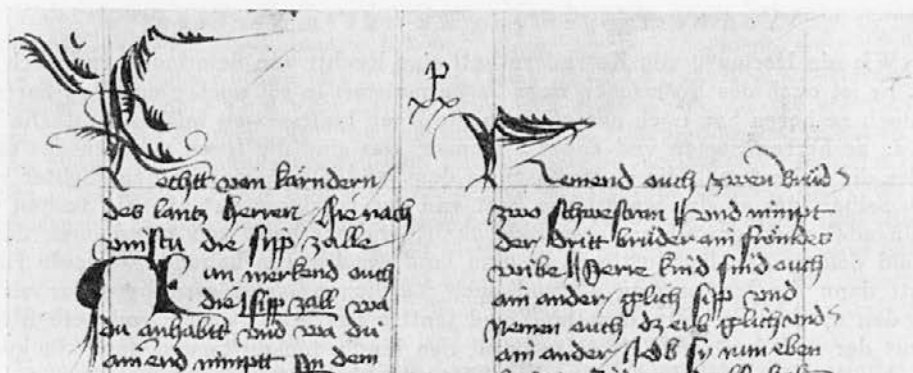 Rechtt von kärndern
des lantz herren hie nach
vinstu die sipp zalle
Nun merkend ouch
die sipp zall wa
du anhabtt und wa du
am end nimptt In dem
xx
Nemend ouch zwen brüd
zwo schwestran und nimpt
der dritt brüder ain frömdes
wibe Herie kind sind ouch
ain ander glich sipp und
nemen ouch dz erb glich
ain ander Ob sy nun eben